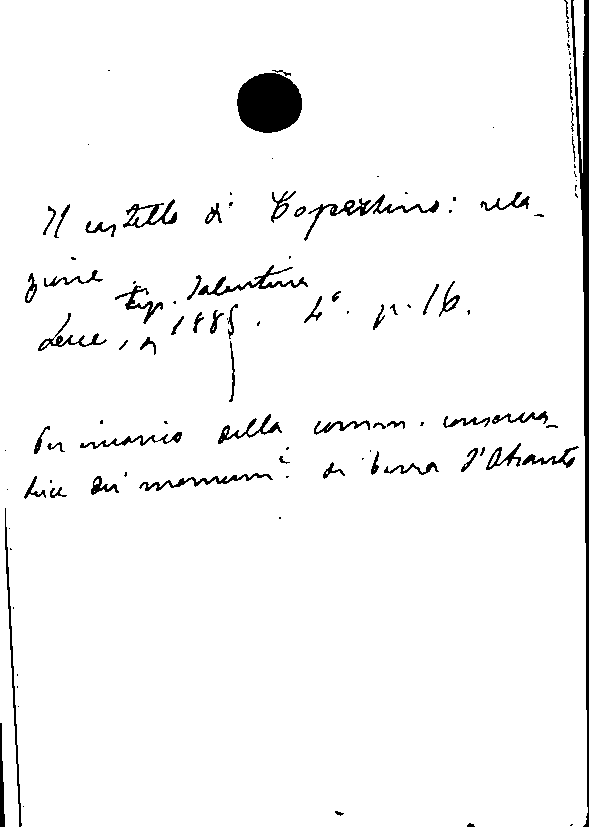 Il castello di Copertino: rela-
zione
tip. Salentina
Lecce, 1885. 4° p. 16.
Per incarico della comm. conserva-
trice dei monum.i di Terra d'Otranto